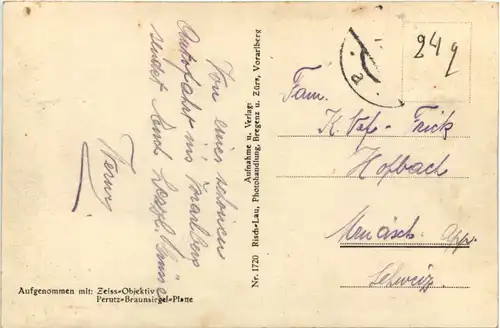 Von einer schönen
Autofahrt ins Vorarlberg
sendet Euch herzl. Grüsse
Aufgenommen mit: Zeiss-Objektiv
Perutz-Braunsiegel-Platte
Nr. 1720 Risch-Lau, Photohandlung, Bregenz u. Zürs, Vorarlberg
Aufnahme u. Verlag:
24 9
Fam.
Frick
Hofbach
App.
Schweiz.